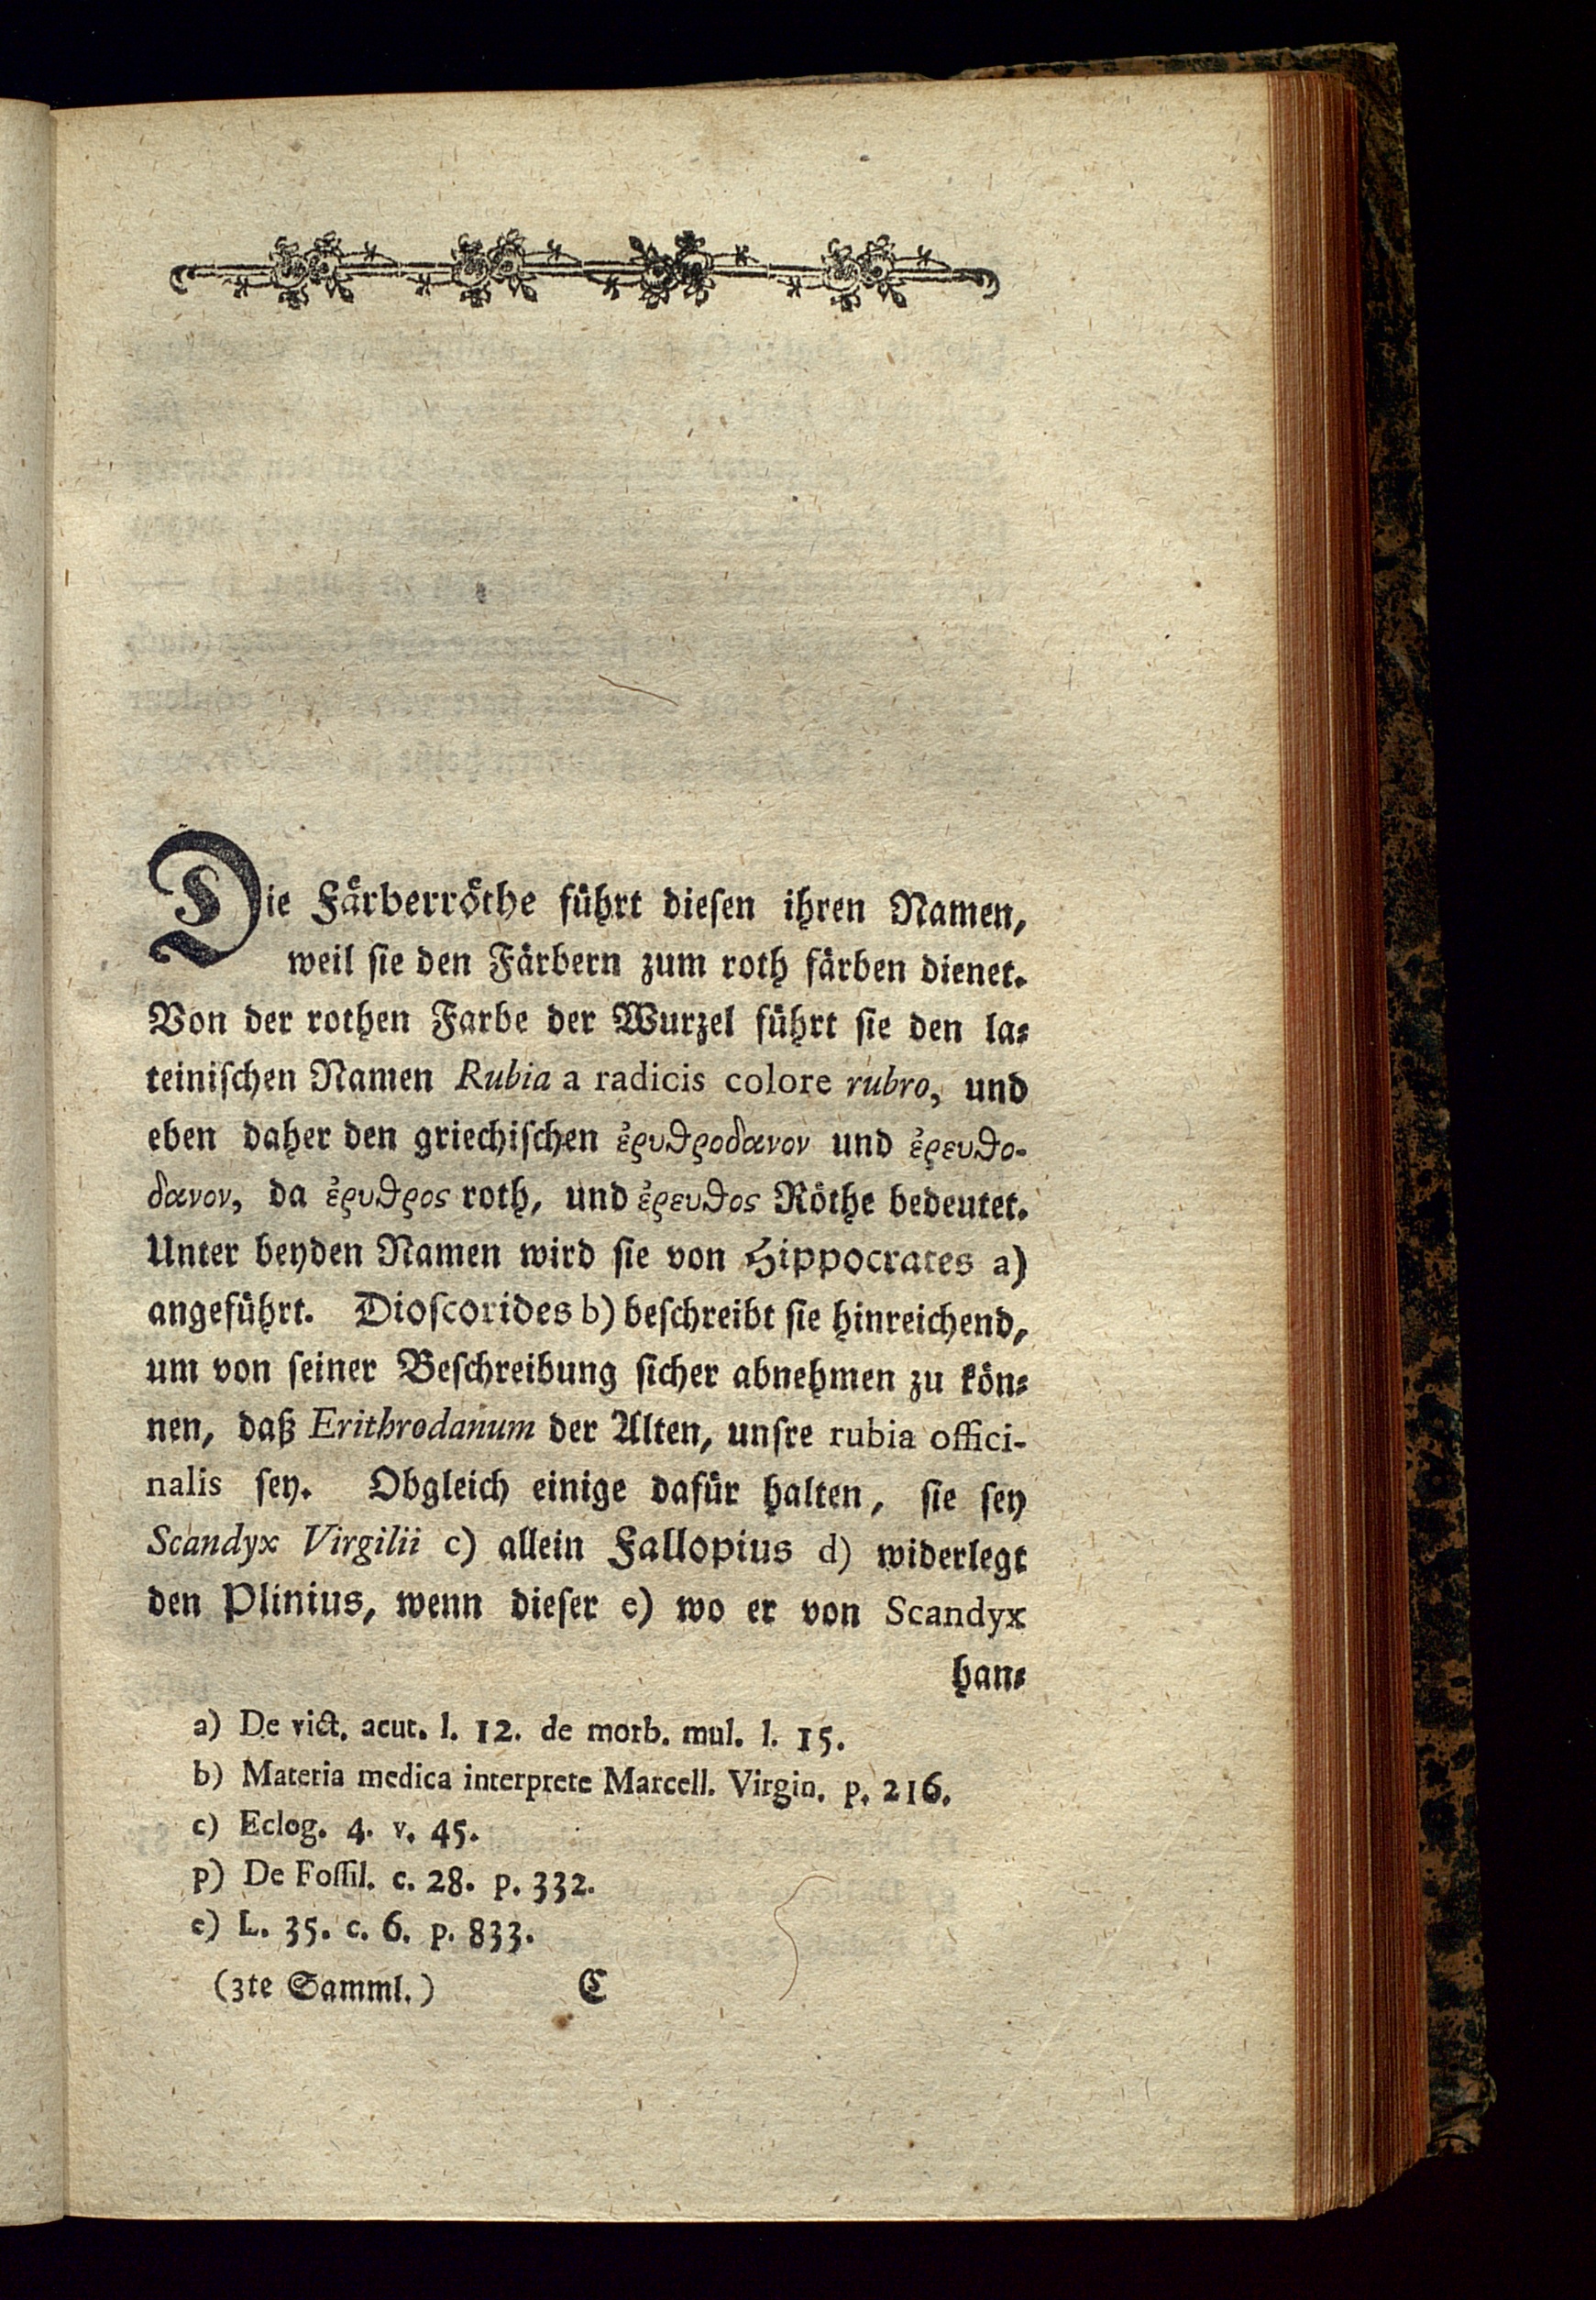 Die Färberröthe führt diesen ihren Namen,
weil sie den Färbern zum roth färben dienet.
Von der rothen Farbe der Wurzel führt sie den la-
teinischen Namen Rubia a radicis colore rubro, und
eben daher den griechischen ἐρυθροδανον und ἐρευθο-
δανον, da ἐρυθρος roth, und ἐρευθος Röthe bedeutet.
Unter beyden Namen wird sie von Hippocrates a)
angeführt. Dioscorides b) beschreibt sie hinreichend,
um von seiner Beschreibung sicher abnehmen zu kön-
nen, daß Erithrodanum der Alten, unsre rubia offici-
nalis sey. Obgleich einige dafür halten, sie sey
Scandyx Virgilii c) allein Fallopius d) widerlegt
den Plinius, wenn dieser e) wo er von Scandyx
han-
a) De vict. acut. l. 12. de morb. mul. l. 15.
b) Materia medica interprete Marcell. Virgin. p. 216.
c) Eclog. 4. v. 45.
p) De Fossil. c. 28. p. 332.
e) L. 35. c. 6. p. 833.
(3te Samml.) C